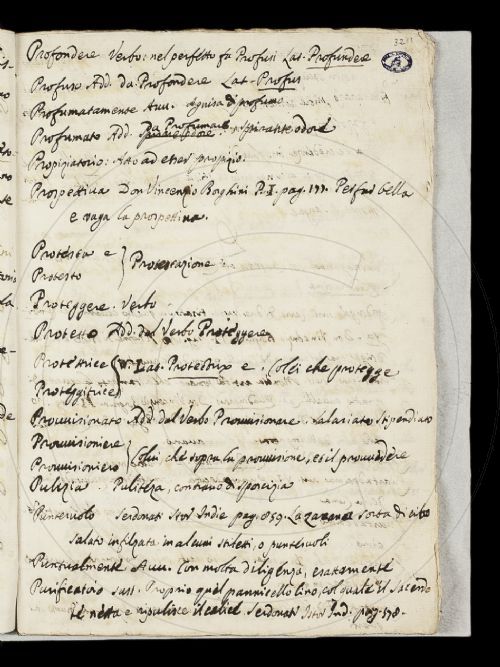 Profondere Verbo: nel perfetto fa Profusi Lat. Profundere
Profuso Add. da Profondere Lat. Profus
Profumatamente Avv. a guisa di profumo
Profumato Add. Da Profumare. spirante odore
Propiziatorio: Atto ad esser propizio
Prospettiva Don Vincenzio Borghini P. I. pag. 177. Per far bella
e vaga la prospettiva.
Protesta e
Protesto } Protestazione
Proteggere. Verbo
Protetto Add. dal Verbo Proteggere
Protettrice
Proteggitrice } Lat. Protectrix e. Colei che protegge
Provvisionato Add. dal Verbo Provvisionare. salariato stipendiato
Provvisioniere
Provvisioniero } Colui che sopra la provvisione, ed il provvedere
Pulizia. Pulitezza, contrario di sporcizia
Punteruolo Serdonati Stor. Indie pag. 859. La sorta di cibo
salato infilzata in alcuni stiletti, o punteruoli
Puntualmente Avv. Con molta diligenza, esattamente
Purificatoio sust. Proprio quel pannicello lino, col quale il Sacerdo
te netta e ripulisce il calice. Serdonati Istor. Ind. pag. 578.